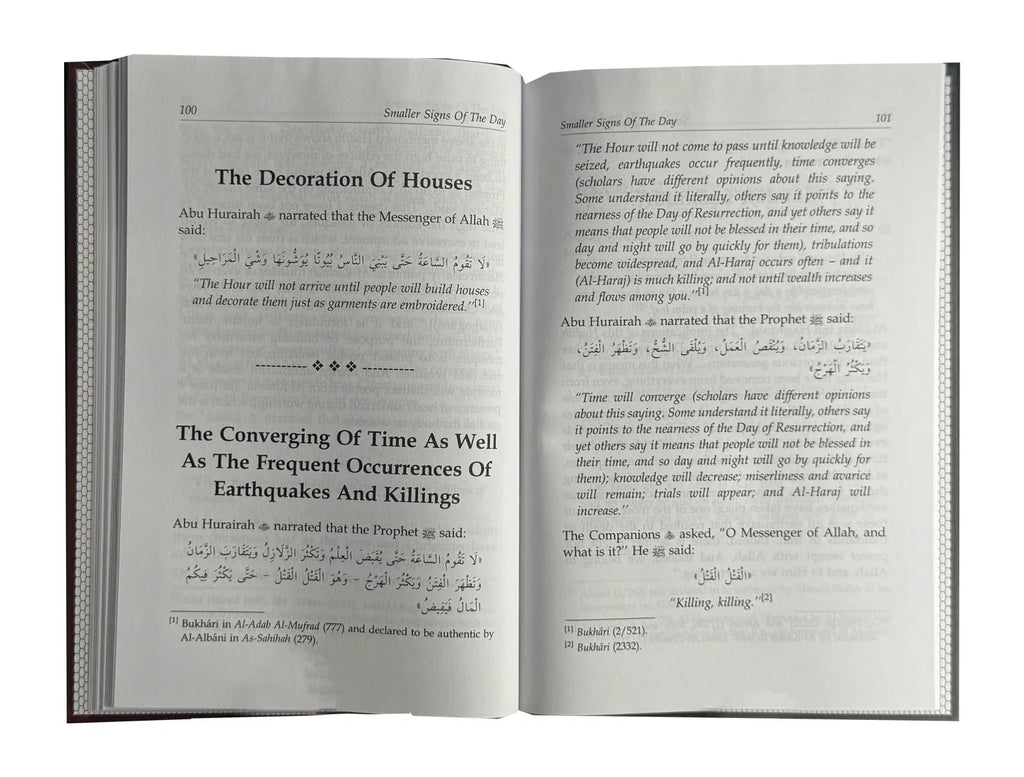 100
Smaller Signs Of The Day
The Decoration Of Houses
Abu Hurairah narrated that the Messenger of Allah ﷺ
said:
«لَا تَقُومُ السَّاعَةُ حَتَّى يَبْنِيَ النَّاسُ بُيُوتًا يُوَشُّونَهَا وَشْيَ الْمَرَاحِيلِ»
“The Hour will not arrive until people will build houses
and decorate them just as garments are embroidered.”[1]
---------- ❖ ❖ ❖ ----------
The Converging Of Time As Well
As The Frequent Occurrences Of
Earthquakes And Killings
Abu Hurairah narrated that the Prophet ﷺ said:
«لَا تَقُومُ السَّاعَةُ حَتَّى يُقْبَضَ الْعِلْمُ وَتَكْثُرَ الزَّلَازِلُ وَيَتَقَارَبَ الزَّمَانُ
وَتَظْهَرَ الْفِتَنُ وَيَكْثُرَ الْهَرْجُ - وَهُوَ الْقَتْلُ الْقَتْلُ - حَتَّى يَكْثُرَ فِيكُمُ
الْمَالُ فَيَفِيضُ»
[1] Bukhâri in Al-Adab Al-Mufrad (777) and declared to be authentic by
Al-Albâni in As-Sahihah (279).
Smaller Signs Of The Day
101
“The Hour will not come to pass until knowledge will be
seized, earthquakes occur frequently, time converges
(scholars have different opinions about this saying.
Some understand it literally, others say it points to the
nearness of the Day of Resurrection, and yet others say it
means that people will not be blessed in their time, and so
day and night will go by quickly for them), tribulations
become widespread, and Al-Haraj occurs often – and it
(Al-Haraj) is much killing; and not until wealth increases
and flows among you.”[1]
Abu Hurairah narrated that the Prophet ﷺ said:
«يَتَقَارَبُ الزَّمَانُ، وَيَنْقُصُ الْعَمَلُ، وَيُلْقَى الشُّحُّ، وَتَظْهَرُ الْفِتَنُ،
وَيَكْثُرُ الْهَرْجُ»
“Time will converge (scholars have different opinions
about this saying. Some understand it literally, others say
it points to the nearness of the Day of Resurrection, and
yet others say it means that people will not be blessed in
their time, and so day and night will go by quickly for
them); knowledge will decrease; miserliness and avarice
will remain; trials will appear; and Al-Haraj will
increase.”
The Companions asked, “O Messenger of Allah, and
what is it?” He ﷺ said:
«الْقَتْلُ الْقَتْلُ»
“Killing, killing.”[2]
[1] Bukhâri (2/521).
[2] Bukhâri (2332).